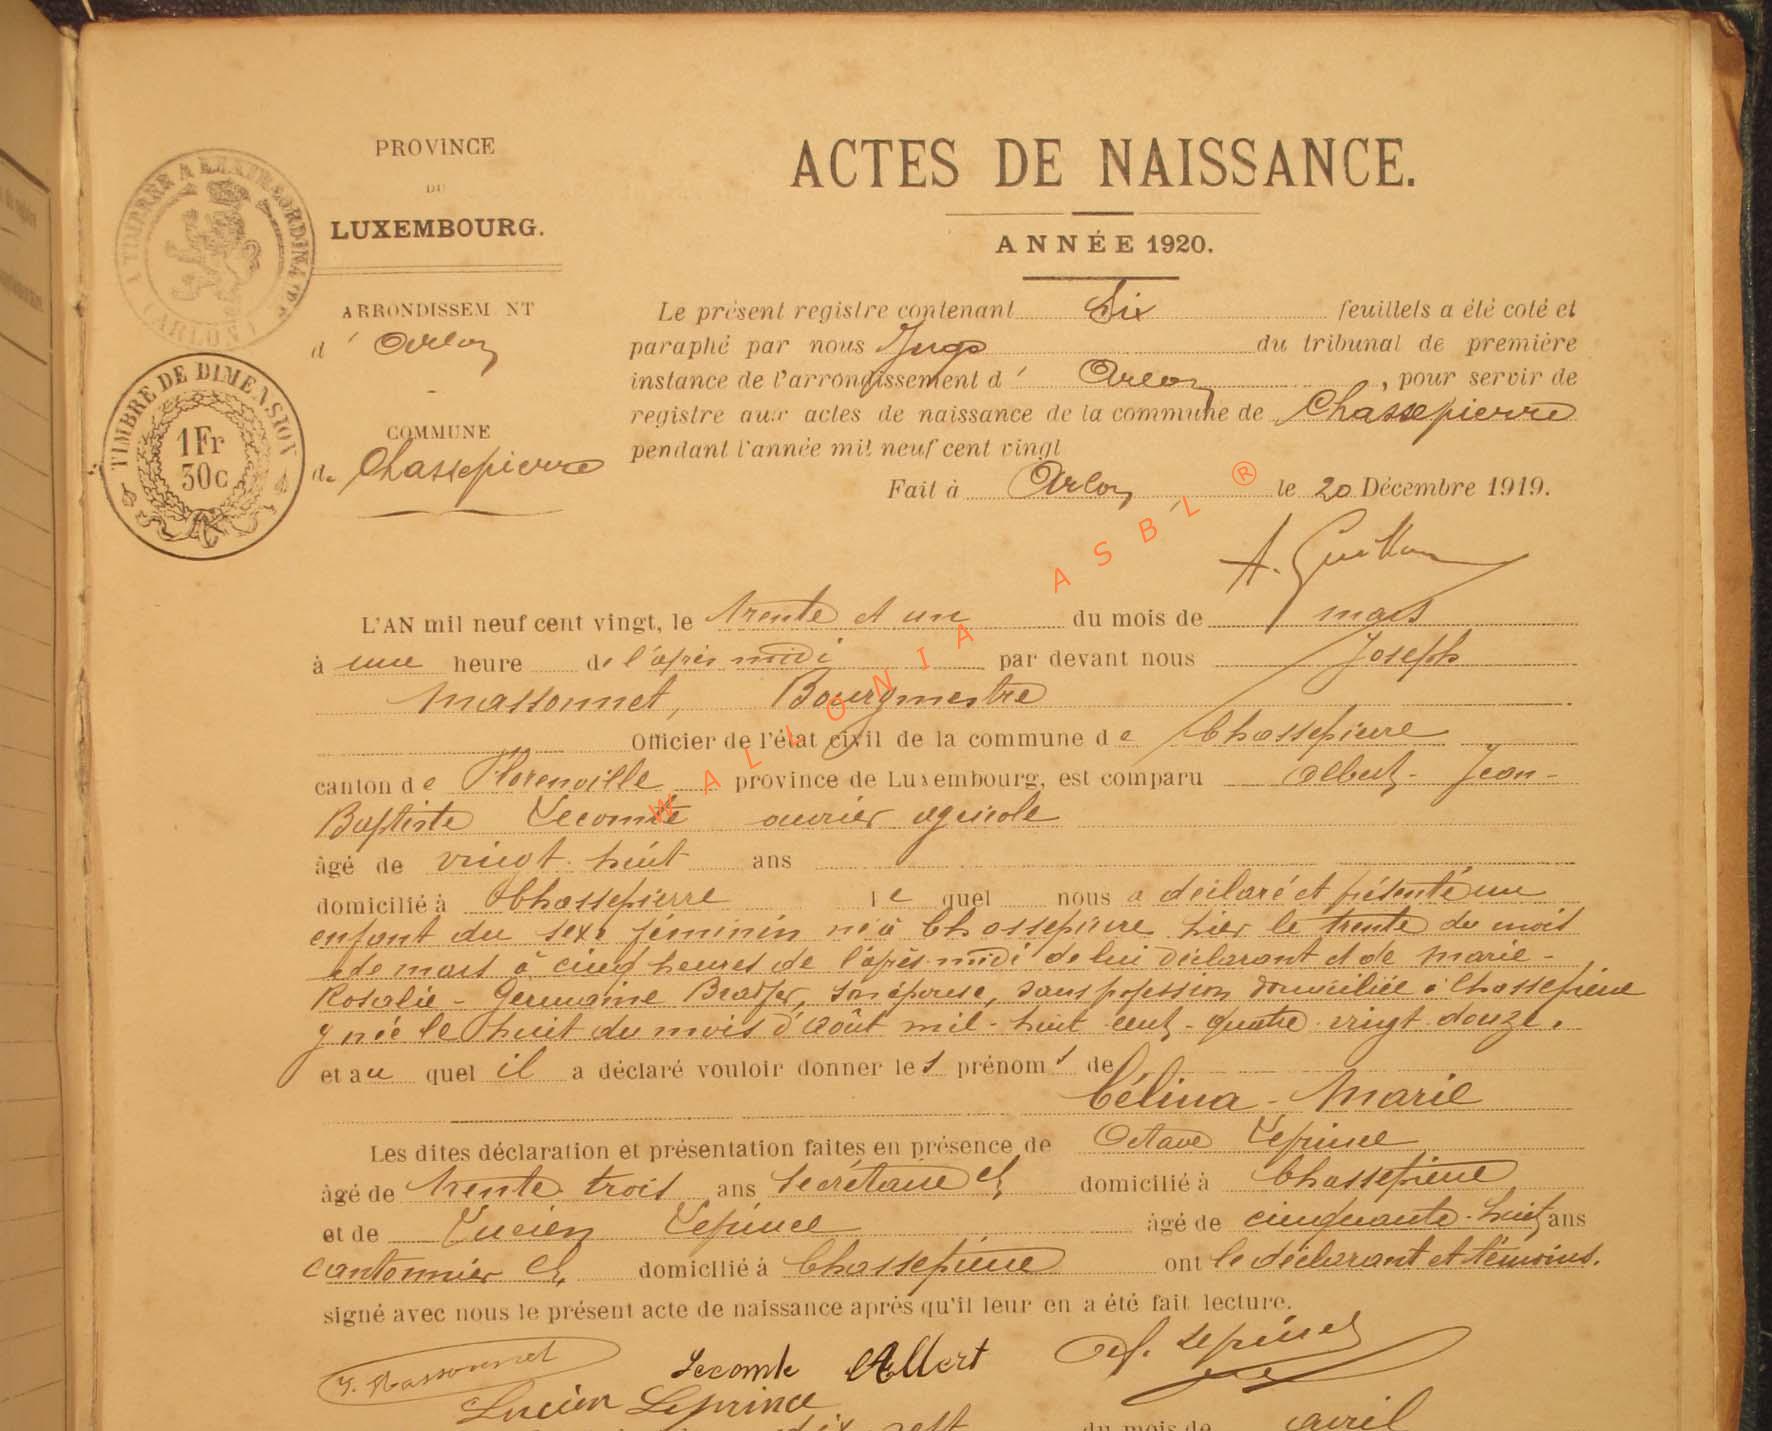 PROVINCE
DU
LUXEMBOURG.
ARRONDISSEM NT
d' Arlon
COMMUNE
de Chassepierre
A TIMBRER A L'EXTRAORDINAIRE
(ARLON)
TIMBRE DE DIMENSION
1Fr
30c
ACTES DE NAISSANCE.
ANNÉE 1920.
Le présent registre contenant Six feuillets a été coté et
paraphé par nous Juge du tribunal de première
instance de l'arrondissement d' Arlon, pour servir de
registre aux actes de naissance de la commune de Chassepierre
pendant l'année mil neuf cent vingt
Fait à Arlon le 20 Décembre 1919.
L'AN mil neuf cent vingt, le trente et un du mois de mars
à une heure de l'après midi par devant nous Joseph
Massonnet, Bourgmestre
Officier de l'état civil de la commune de Chassepierre
canton de Florenville province de Luxembourg, est comparu Albert-Jean-
Baptiste Lecomte ouvrier agricole
âgé de vingt-huit ans
domicilié à Chassepierre lequel nous a déclaré et présenté un
enfant du sexe féminin né à Chassepierre hier le trente du mois
de mars à cinq heures de l'après-midi de lui déclarant et de Marie-
Rosalie-Germaine, son épouse, sans profession domiciliée à Chassepierre
y née le huit du mois d'août mil-huit-cent-quatre-vingt-douze.
et au quel il a déclaré vouloir donner les prénoms de
Célina-Marie
Les dites déclaration et présentation faites en présence de Octave Leprince
âgé de trente trois ans secrétaire et domicilié à Chassepierre
et de Lucien Leprince âgé de cinquante-huit ans
cantonnier et domicilié à Chassepierre ont le déclarant et témoins.
signé avec nous le présent acte de naissance après qu'il leur en a été fait lecture.
J. Massonnet Lecomte Albert Oct. Leprince
Lucien Leprince
dix sept du mois de avril
WALLONIA ASBL ®